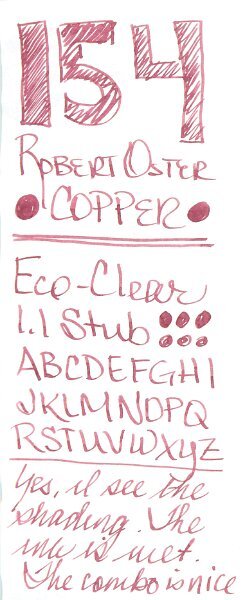 154
Robert Oster
Copper
Eco-Clear
1.1 Stub
ABCDEFGHI
JKLMNOPQ
RSTUVWXYZ
Yes, I see the
shading. The
ink is wet.
The combo is nice